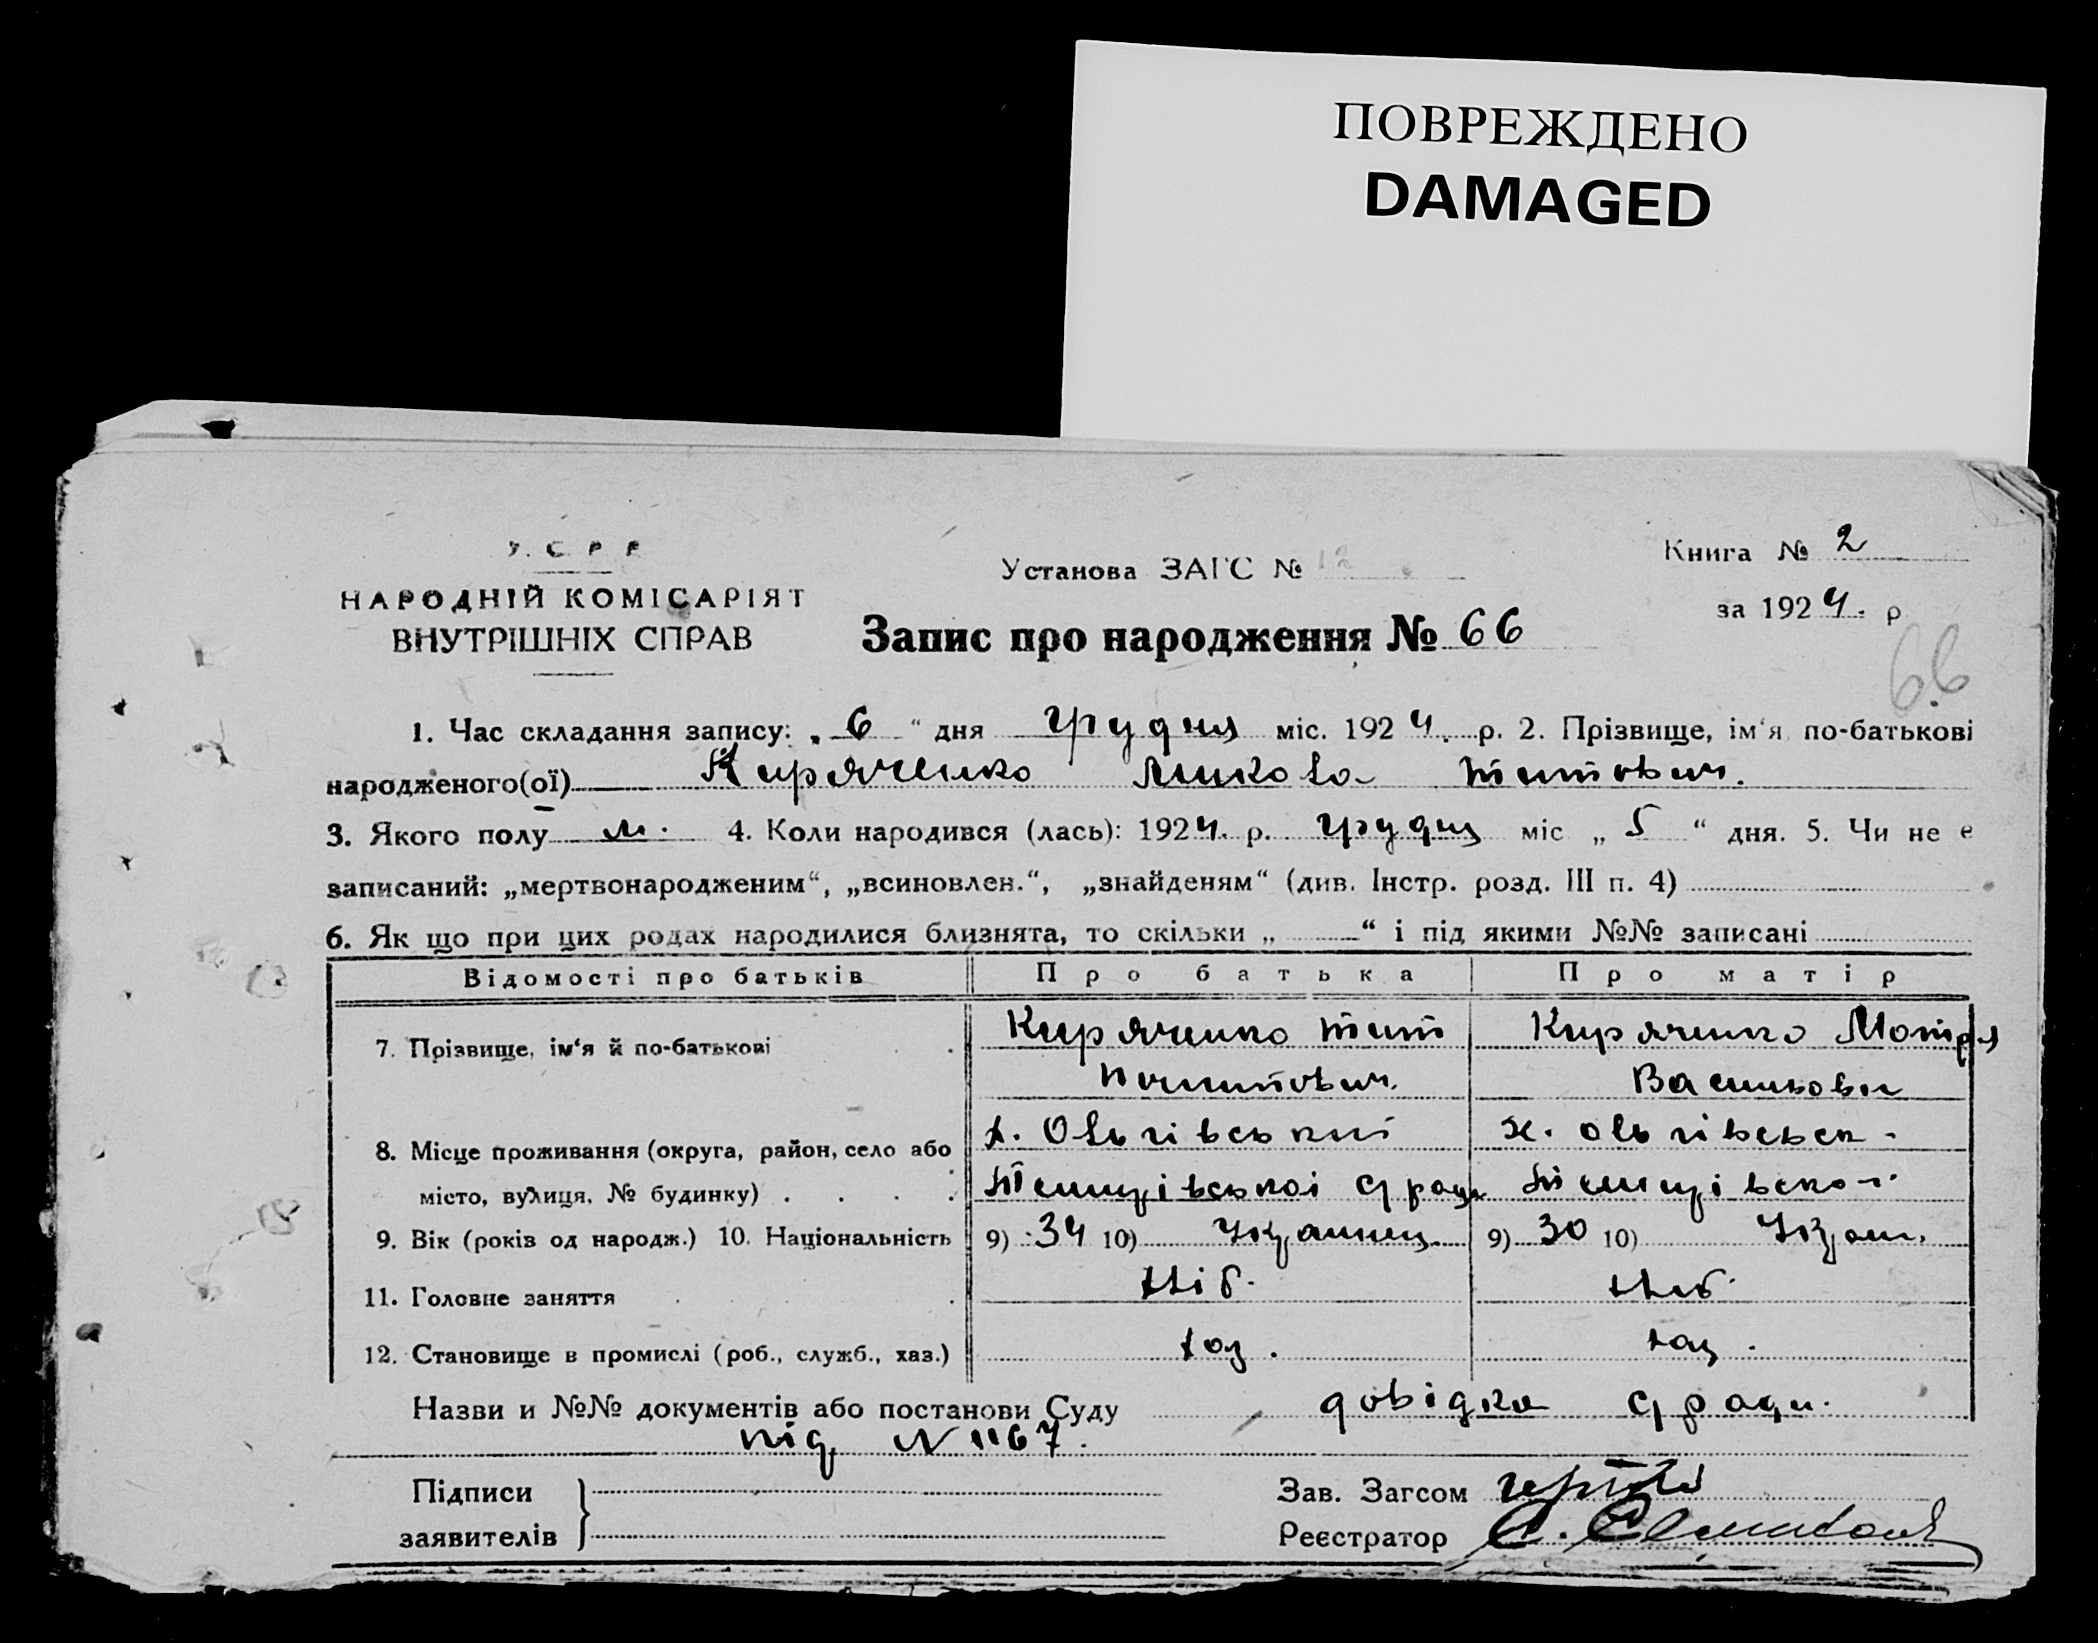 ПОВРЕЖДЕНО
DAMAGED
У. С. Р. Р.
НАРОДНІЙ КОМІСАРІЯТ
ВНУТРІШНІХ СПРАВ
Установа ЗАГС № 12
Книга № 2
за 1924. р
Запис про народження № 66
66
1. Час складання запису: „ 6 “ дня грудня міс. 1924. р. 2. Прізвище, ім‘я по-батькові
народженого(ої) Киряченко Микола Титович.
3. Якого полу м. 4. Коли народився (лась): 1924. р. грудня міс „ 5 “ дня. 5. Чи не е
записаний: „мертвонародженим“, „всиновлен.“, „знайденям“ (див. Інстр. розд. III п. 4)
6. Як що при цих родах народилися близнята, то скільки „ “ і під якими №№ записані
Відомості про батьків Про батька Про матір
7. Прізвище, ім‘я й по-батькові Киряченко Тит Киряченко Мотря
Васильовн
8. Місце проживання (округа, район, село або х. Ольгівський х. Ольгівськ.
місто, вулиця, № будинку) . . . . с/ради
9. Вік (років од народж.) 10. Національність 9) 34 10) Украинец 9) 30 10) Украи.
11. Головне заняття Хліб. Хліб.
12. Становище в промислі (роб., служб., хаз.) хаз. хаз.
Назви и №№ документів або постанови Суду довідка с/ради.
під N 1167.
Підписи
заявителів
Зав. Загсом
Реєстратор